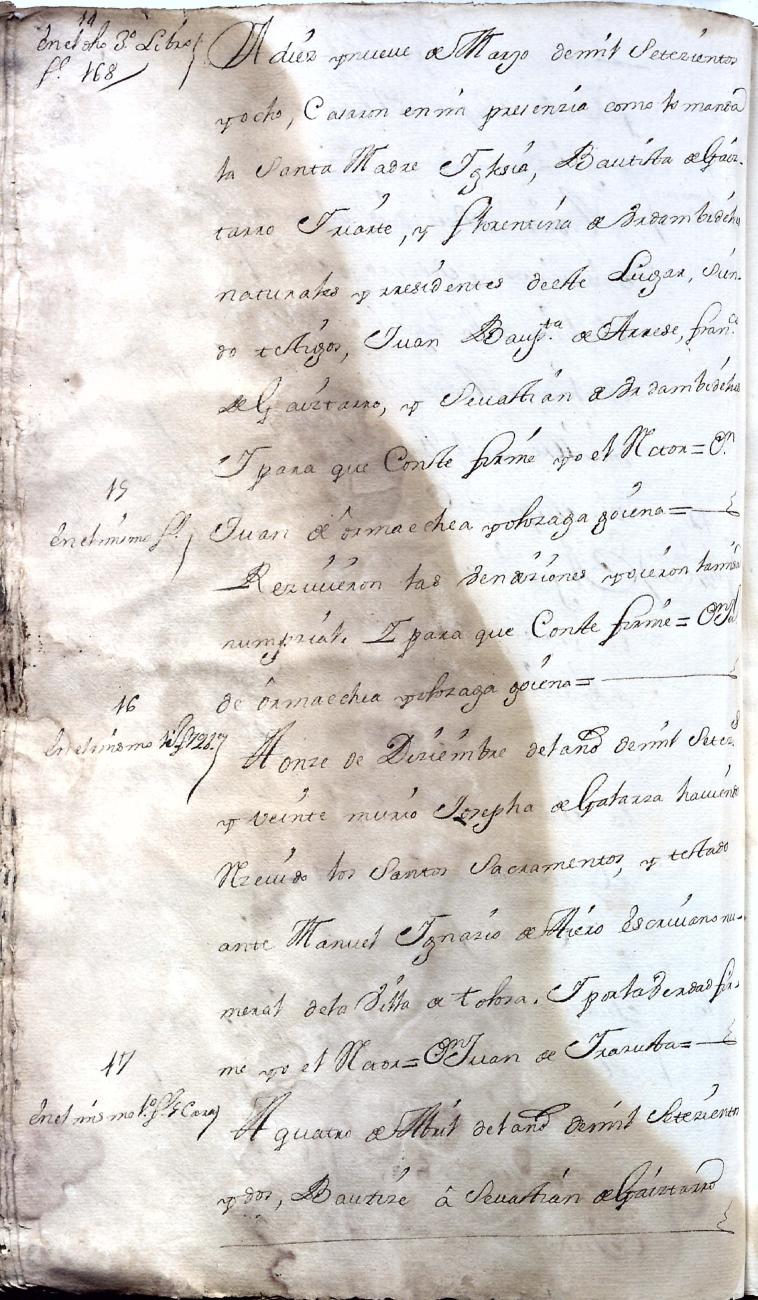 14
En el dho 3º Libro
fº 168
A diez y nueve de Marzo de mil Setezientos
y ocho, Casaron en mi presenzia como lo manda
la Santa Madre Iglesia, Bautista de Gaiz-
tarro Iriarte, y florentina de Urdambidelus
naturales y rresidentes deeste Lugar, Sien-
do testigos, Juan Bauptta de Arrese, franco
de Gaiztarro, y Sevastian de Urdambidelus
I para que Conste firmé yo el Rector = Dn
15
En el mismo fº
Juan de ôrmaechea y olozaga goiena =
Rezivieron las Bendiziones y dieron
Y para que Conste firmé = Dn
de ôrmaechea y olozaga goiena =
16
En el mismo
A onze de Deziembre del año de mil Setezs
y veinte murió Josepha de Galarza haviendo
Rzevido los Santos Sacramentos, y testado
ante Manuel Ignazio de Escrivano nu-
meral dela Villa de tolosa. I por la Berdad fir-
me yo el Rector = Dn Juan de
17
En el mismo
A quatro de Abril del año de mil Setezientos
y dos, Bautizé â Sevastian de Gaiztarro